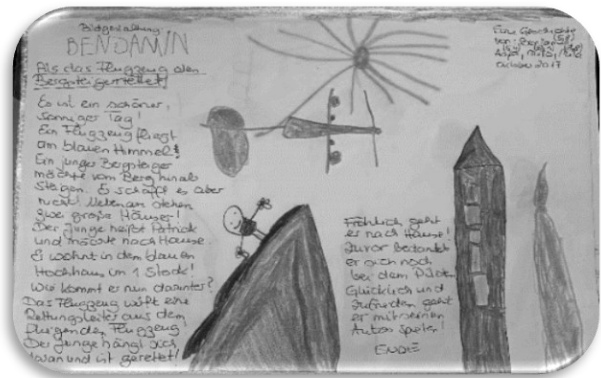 Bildgestaltung
BENDAMIN
Als das Flugzeug den
Bergsteiger rettet!
Es ist ein schöner,
sonniger Tag!
Ein Flugzeug fliegt
am blauen Himmel!
Ein junger Bergsteiger
möchte vom Berg hinab
steigen. Er schafft es aber
nicht! Nebenan stehen
zwei große Häuser!
Der Junge heißt Patrick
und möchte nach Hause.
Er wohnt in dem blauen
Hochhaus im 1 Stock!
Wie kommt er nun darunter?
Das Flugzeug wirft eine
Rettungsleiter aus dem
fliegenden Flugzeug
Der Junge hängt sich
daran und ist gerettet!
Fröhlich geht
er nach Hause!
Zuvor bedankt
er sich noch
bei dem Piloten
Glücklich und
zufrieden geht
er mit seinen
Autos spielen!
ENDE
Eine Geschichte
von:
Oktober 2017